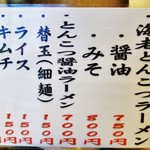 海老とんこつラーメン
・醤油 750円
・みそ 800円
・とんこつ醤油ラーメン 700円
・替玉(細麺) 150円
・ライス 150円
・キムチ 100円